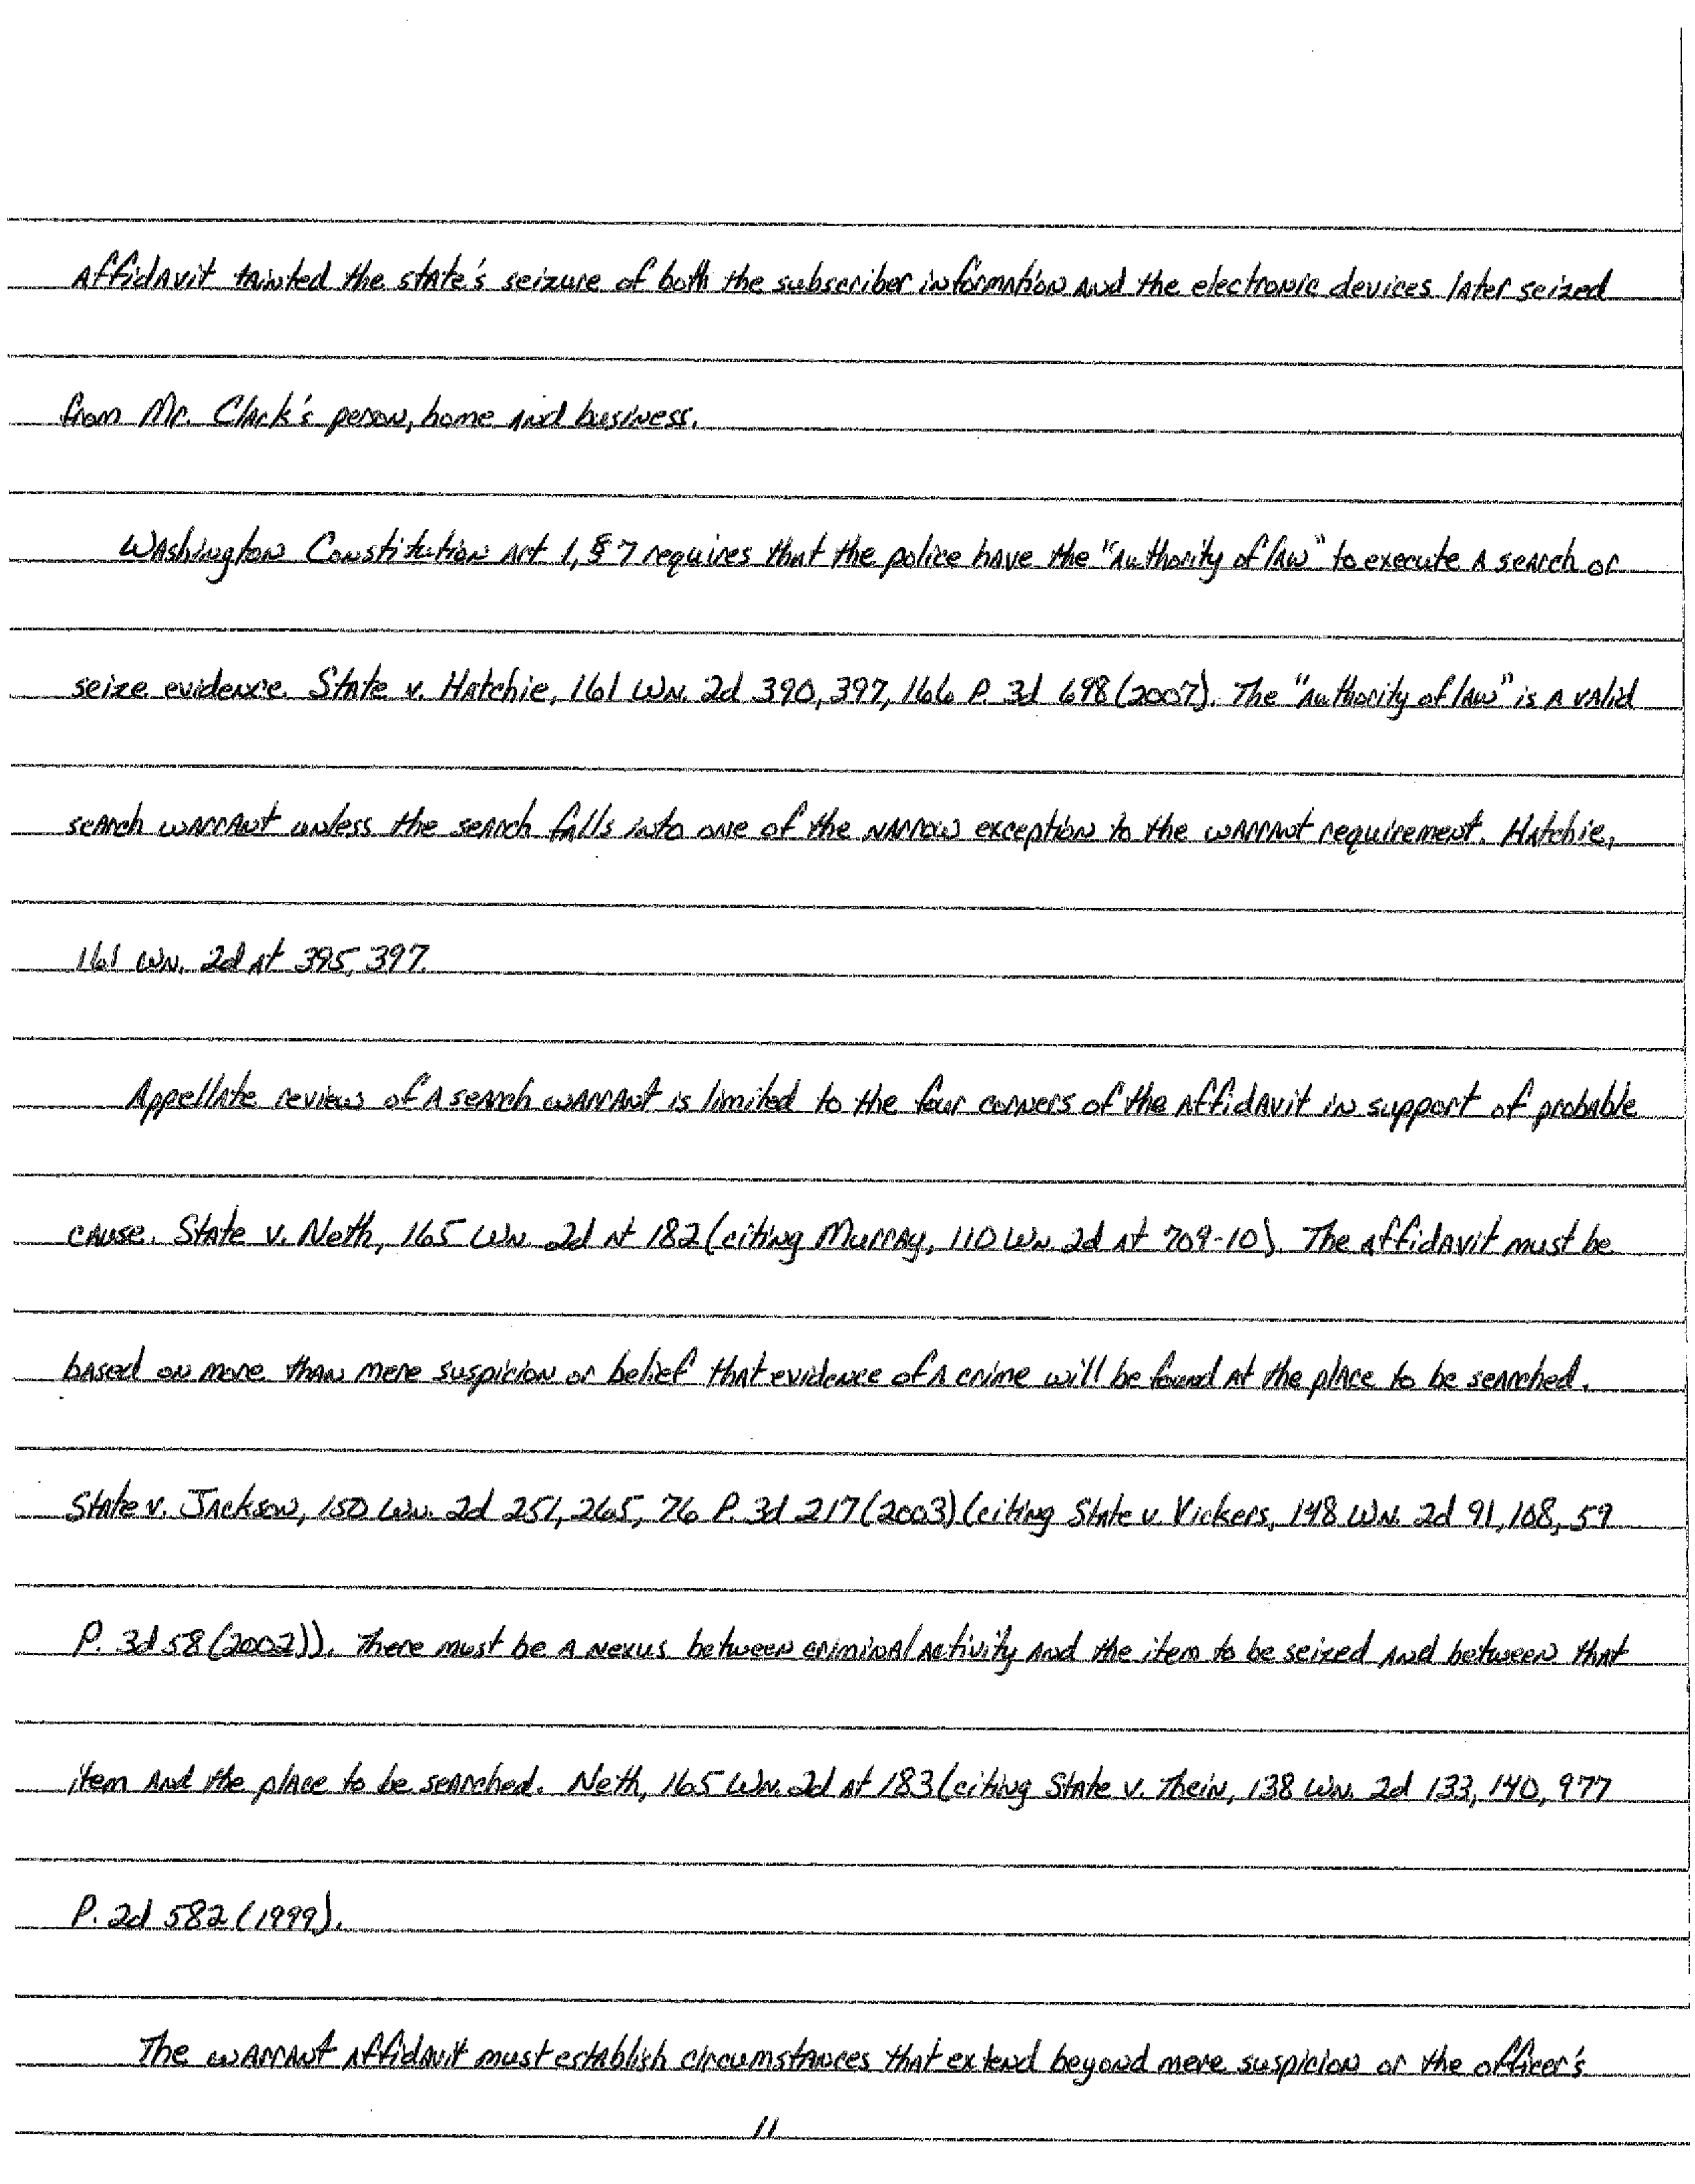 Affidavit tainted the state's seizure of both the subscriber information and the electronic devices later seized
from Mr. Clark's person, home and business.
Washington Constitution Art. 1, § 7 requires that the police have the "authority of law" to execute a search or
seize evidence. State v. Hatchie, 161 Wn. 2d 390, 397, 166 P. 3d 698 (2007). The "authority of law" is a valid
search warrant unless the search falls into one of the narrow exception to the warrant requirement. Hatchie,
161 Wn. 2d at 395, 397.
Appellate review of a search warrant is limited to the four corners of the affidavit in support of probable
cause. State v. Neth, 165 Wn. 2d at 182 (citing Murray, 110 Wn. 2d at 709-10). The affidavit must be
based on more than mere suspicion or belief that evidence of a crime will be found at the place to be searched.
State v. Jackson, 150 Wn. 2d 251, 265, 76 P. 3d 217 (2003) (citing State v. Vickers, 148 Wn. 2d 91, 108, 59
P. 3d 58 (2002)). There must be a nexus between criminal activity and the item to be seized and between that
item and the place to be searched. Neth, 165 Wn. 2d at 183 (citing State v. Thein, 138 Wn. 2d 133, 140, 977
P. 2d 582 (1999).
The warrant affidavit must establish circumstances that extend beyond mere suspicion or the officer's
11